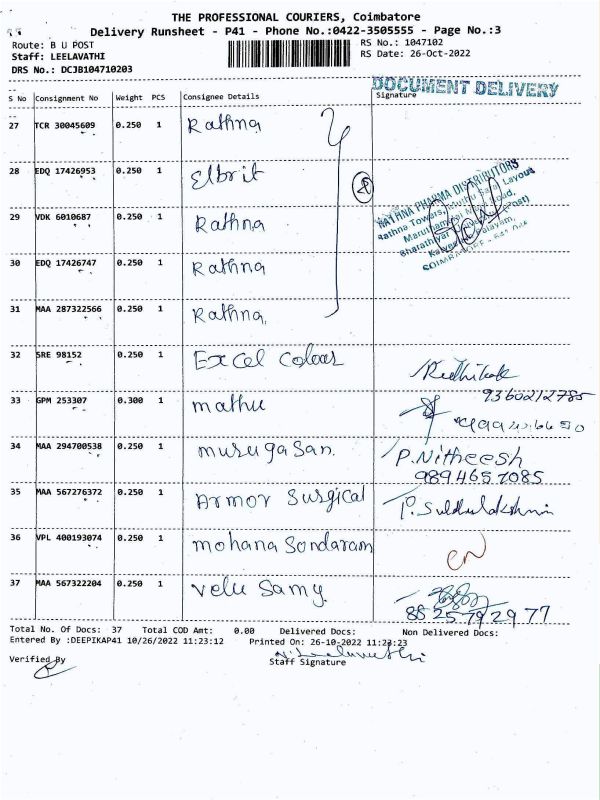 THE PROFESSIONAL COURIERS, Coimbatore
Delivery Runsheet - P41 - Phone No.:0422-3505555 - Page No.:3
Route: B U POST
RS No.: 1047102
Staff: LEELAVATHI
RS Date: 26-Oct-2022
DRS No.: DCJB104710203
DOCUMENT DELIVERY
S No Consignment No Weight PCS Consignee Details Signature
27 TCR 30045609 0.250 1 Rathna
28 EDQ 17426953 0.250 1 Elbrit
RATHNA PHARMA DISTRIBUTORS
Rathna Towers, Muthu Layout
29 VDK 6010687 0.250 1 Rathna
30 EDQ 17426747 0.250 1 Rathna
31 MAA 287322566 0.250 1 Rathna
32 SRE 98152 0.250 1 Excel Colour
9360212785
33 GPM 253307 0.300 1 mathu
34 MAA 294700538 0.250 1 murugasan. P.Nitheesh
9894657085
35 MAA 567276372 0.250 1 Armor Surgical P.Sulduladshmi
36 VPL 400193074 0.250 1 mohana Sondaram
37 MAA 567322204 0.250 1 velu Samy.
88 25 79 29 77
Total No. Of Docs: 37 Total COD Amt: 0.00 Delivered Docs: Non Delivered Docs:
Entered By :DEEPIKAP41 10/26/2022 11:23:12 Printed On: 26-10-2022 11:23:23
Verified By
Staff Signature